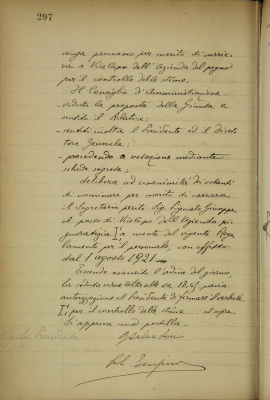 297
promosso per merito di carrie-
ra a Vicecapo dell'Azienda dei pegni
per il controllo delle stime.
Il Consiglio d'Amministrazione:
veduta la proposta della Giunta e
sentito il Relatore;
sentiti inoltre il Presidente ed il Diret-
tore Generale;
procedendo a votazione mediante
schede segrete;
delibera ad unanimità di votanti
di nominare per merito di carriera
il Segretario perito Sig. Giuseppe
al posto di Vicecapo dell'Azienda pi-
gnoratizia I' a mente del vigente Rego-
lamento per il personale, con effetto
dal 1 agosto 1921.
Essendo esaurito l'ordine del giorno,
la seduta viene tolta alle ore 18,45 previa
autorizzazione al Presidente di firmare il verbale.
I' per il controllo delle stime
Si approva una postilla.
Presidente